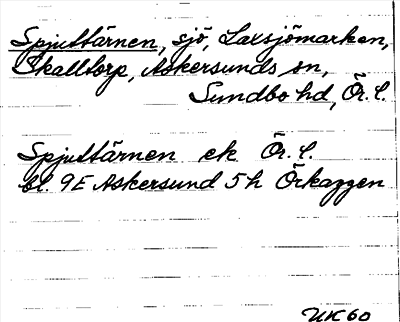 Spjuttärnen, sjö, Laxsjömarken,
Skalltorp, Askersunds sn,
Sundbo hd, Ör. l.
Spjuttärnen ek Ör. l.
bl. 9E Askersund 5h Örkaggen
UK60